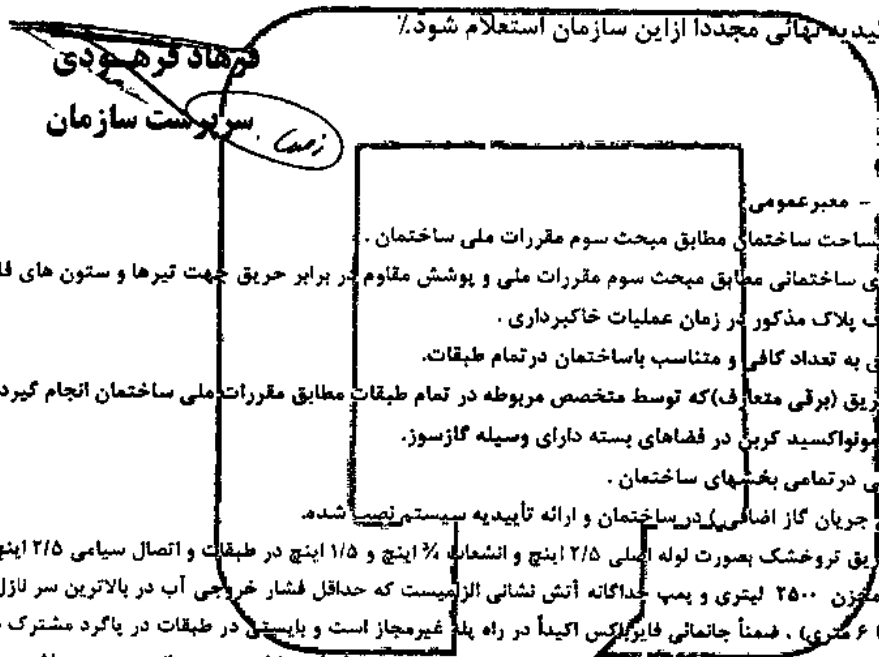 نهائی مجددا ازاین سازمان استعلام شود٪
فرهاد فرهودی
سرپرست سازمان
- معبرعمومی
ساحت ساختمان مطابق مبحث سوم مقررات ملی ساختمان .
ی ساختمانی مطابق مبحث سوم مقررات ملی و پوشش مقاوم در برابر حریق جهت تیرها و ستون های فل
ف پلاک مذکور در زمان عملیات خاکبرداری .
ق به تعداد کافی و متناسب باساختمان درتمام طبقات.
ریق (برقی متعارف)که توسط متخصص مربوطه در تمام طبقات مطابق مقررات ملی ساختمان انجام گیرد
مونواکسید کربن در فضاهای بسته دارای وسیله گازسوز.
ی درتمامی بخشهای ساختمان .
جریان گاز اضافی ) در ساختمان و ارائه تأییدیه سیستم نصب شده.
ریق تروخشک بصورت لوله اصلی ۲/۵ اینچ و انشعاب ¾ اینچ و ۱/۵ اینچ در طبقات و اتصال سیامی ۲/۵ اینچ
مخزن ۲۵۰۰ لیتری و پمپ جداگانه آتش نشانی الزامیست که حداقل فشار خروجی آب در بالاترین سر نازل
۶ متری) . ضمناً جانمائی فایرباکس اکیداً در راه پله غیرمجاز است و بایستی در طبقات در پاگرد مشترک